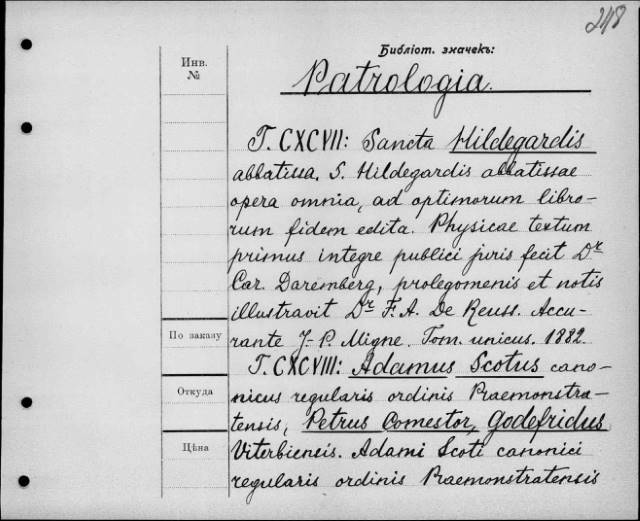 248
Библіот. значекъ:
Инв.
№
Patrologia.
T. CXCVII: Sancta Hildegardis
abbatissa. S. Hildegardis abbatissae
opera omnia, ad optimorum libro-
rum fidem edita. Physicae textum
primus integre publici juris fecit Dr
Car. Daremberg, prolegomenis et notis
illustravit Dr F. A. De Reuss. Accu-
rante J-P. Migne. Tom. unicus. 1882.
По заказу
T. CXCVIII: Adamus Scotus cano-
Откуда
nicus regularis ordinis Praemonstra-
tensis, Petrus Comestor, Godefridus
Цѣна
Viterbiensis. Adami Scoti canonici
regularis ordinis Praemonstratensis